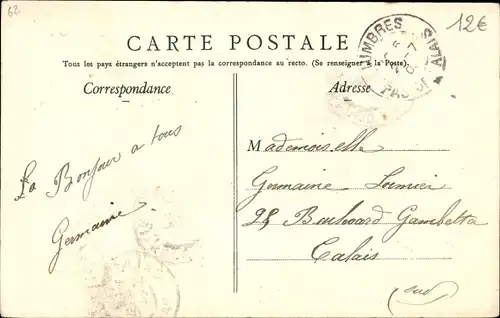 62
12€
CARTE POSTALE
Tous les pays étrangers n'acceptent pas la correspondance au recto. (Se renseigner à la Poste).
LUMBRES
PAS DE CALAIS
Correspondance
Adresse
La Bonjour a tous
Germaine
Mademoiselle
Germaine
25 Boulevard Gambetta
Calais